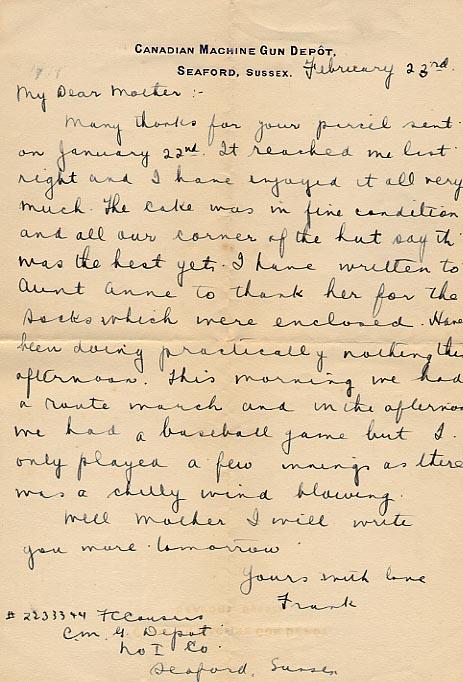 CANADIAN MACHINE GUN DEPÔT,
SEAFORD, SUSSEX. February 23rd.
My Dear Mother :-
Many thanks for your parcel sent
on January 22nd. It reached me last
night and I have enjoyed it all very
much. The cake was in fine condition
and all our corner of the hut say th
was the best yet. I have written to
Aunt Anne to thank her for the
socks which were enclosed. Have
been doing practically nothing this
afternoon. This morning we had
a route march and in the afternoo
we had a baseball game but I
only played a few innings as there
was a chilly wind blowing.
Well Mother I will write
you more tomorrow
Yours with love
Frank
# 2233344 FCCousins
C.M.G. Depot
No I Co.
Seaford, Sussex